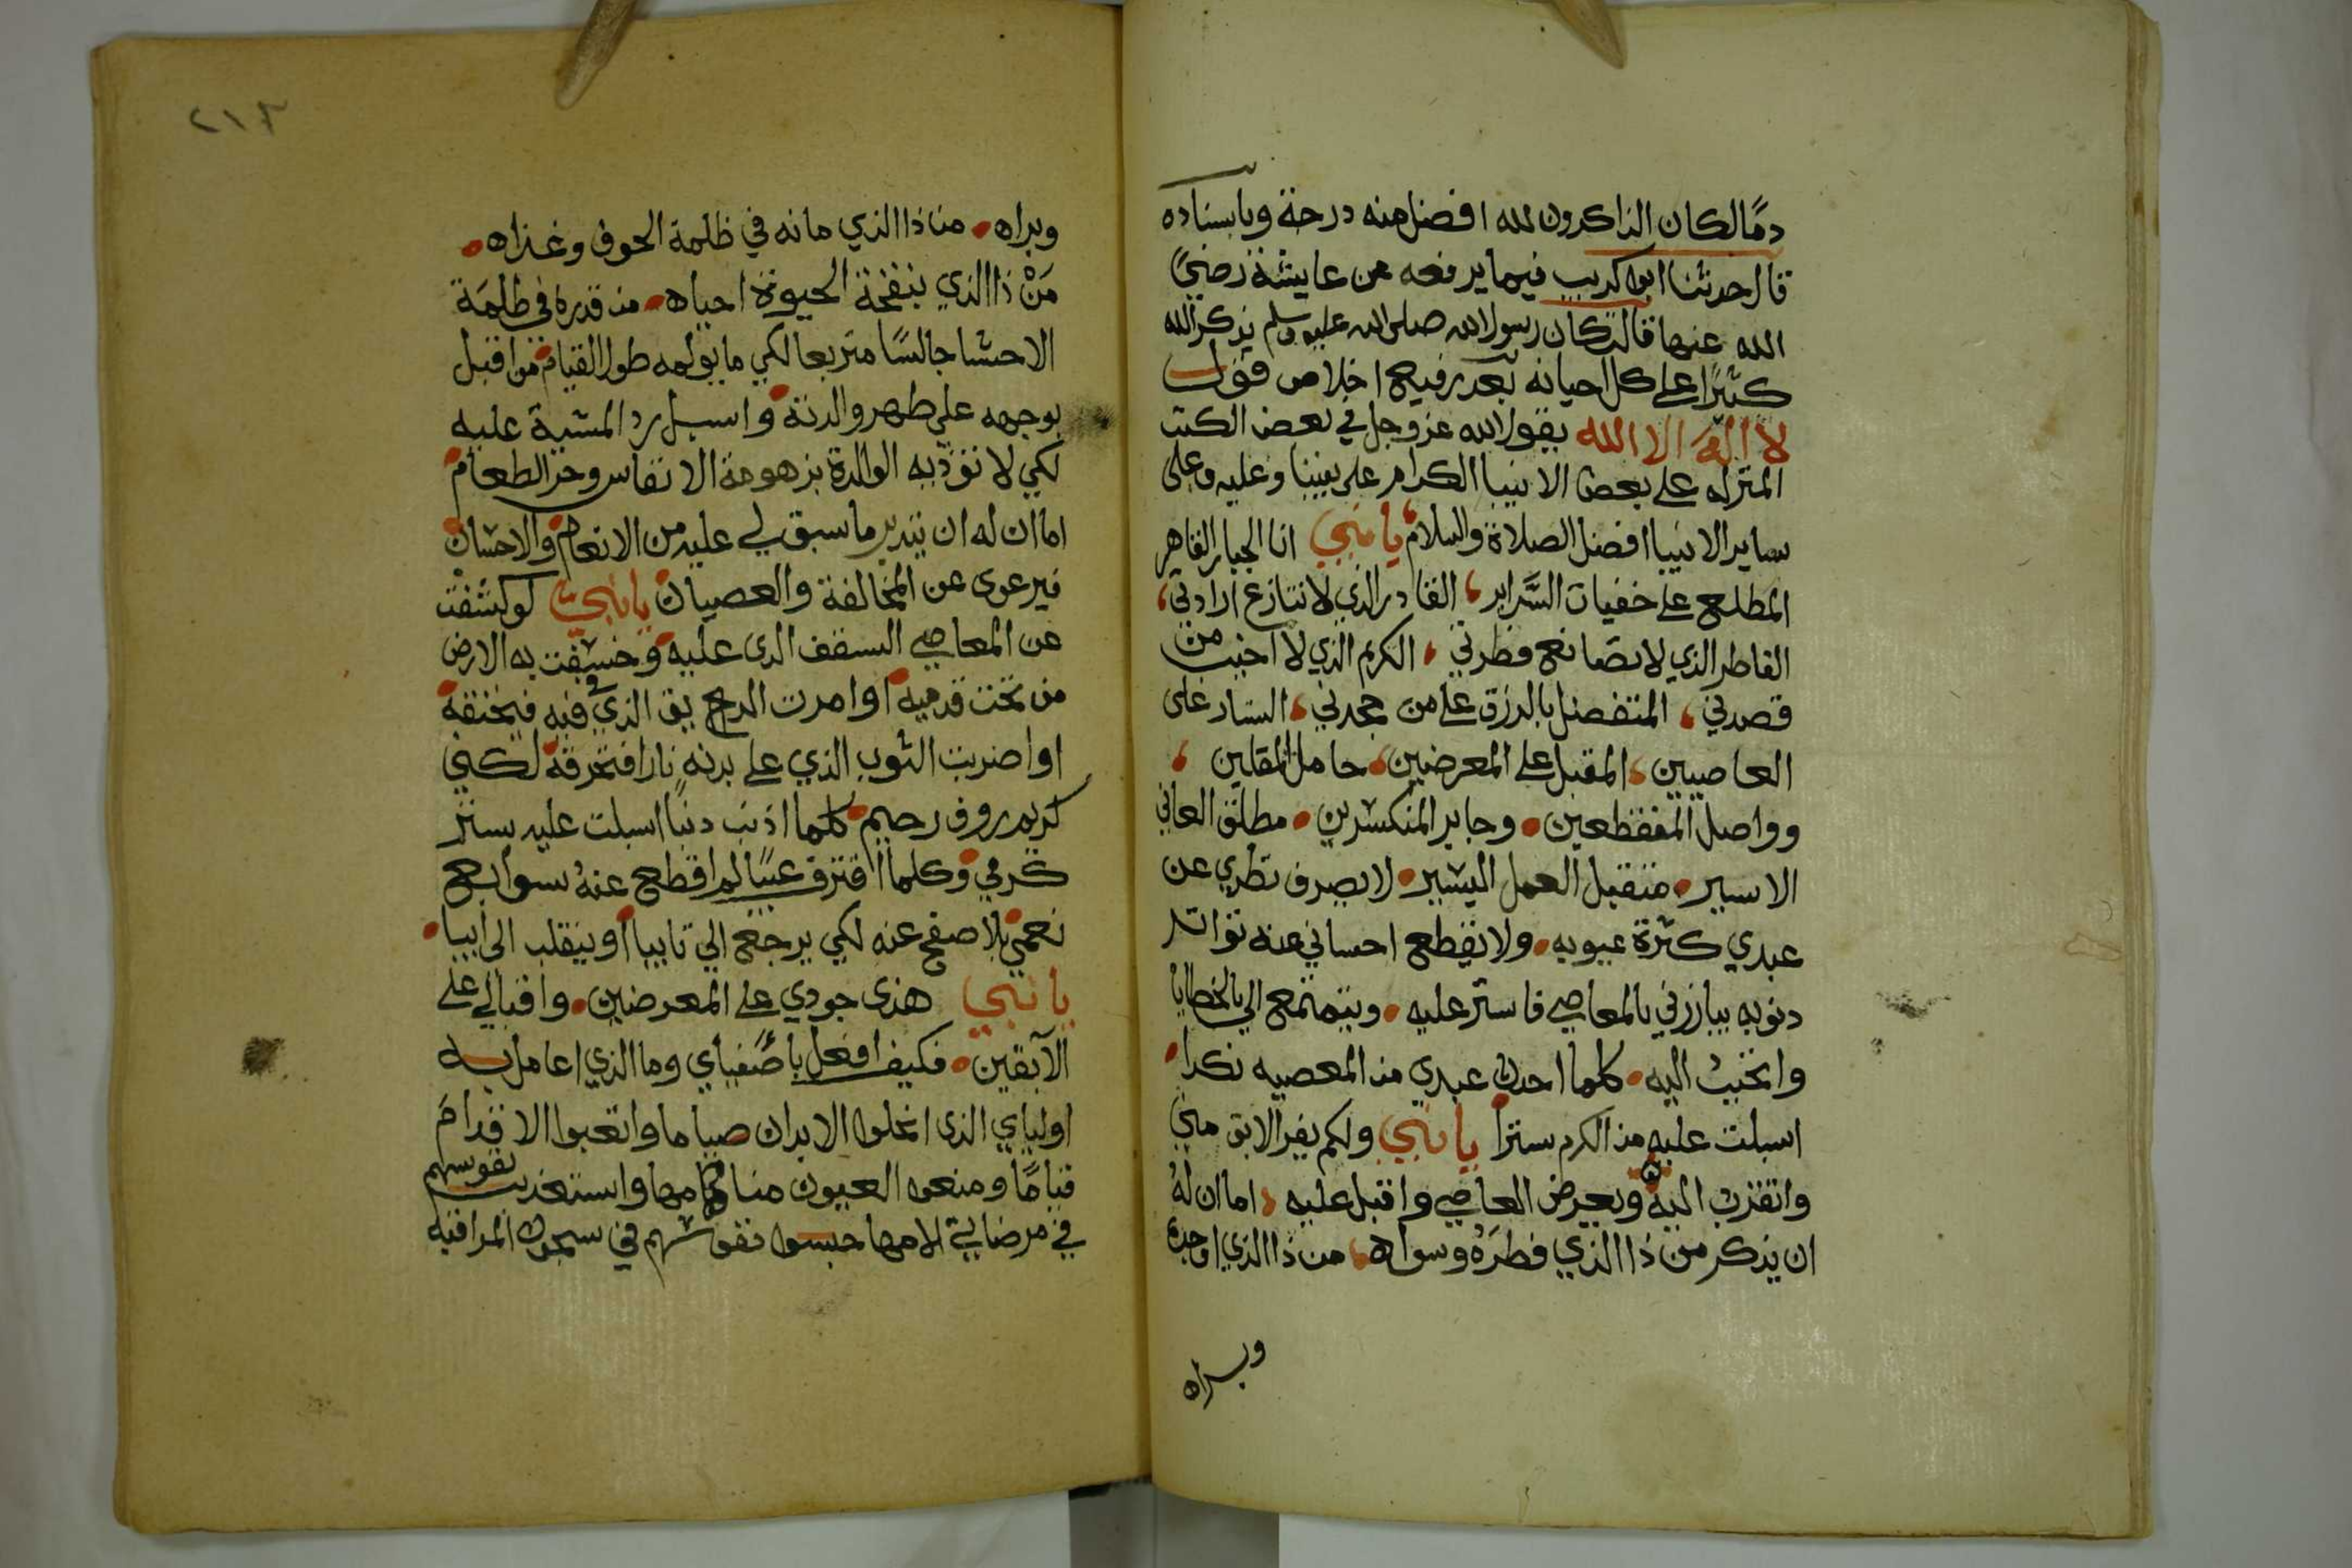 دمًا لكان الذاكرون لله افضل منه درجة وباسناده
قال حدثنا ابو كريب فيما يرفعه عن عايشة رضي
الله عنها قالت كان رسول الله صلى الله عليه وسلم يذكر الله
كثيرًا على كل احيانه بعد رفيع اخلاص قول
لا اله الا الله يقول الله عز وجل في بعض الكتب
المنزله على بعض الانبيا الكرام على نبينا وعليه وعلى
ساير الانبيا افضل الصلاة والسلام يا نبي انا الجبار القاهر
المطلع على خفيات السَّراير القادر الذي لا تنازع ارادتي
الفاطر الذي لا تضانع فطرتي الكريم الذي لا اخيب من
قصدني المتفضل بالرزق على من جحدني الستار على
العاصيين المقبل على المعرضين حامل المقلين
وواصل المنقطعين وجابر المنكسرين مطلق العاني
الاسير متقبل العمل اليسير لا يصرف نظري عن
عبدي كثرة عيوبه ولا يقطع احساني عنه تواتر
دنوبه يبارزني بالمعاصي فاستر عليه ويتمقع الي بالخطايا
واتحبب اليه كلما احدث عبدي من المعصيه نكرا
اسبلت عليه من الكرم سترا يا نبي ولكم يفر الابق مني
واتقرب اليه ويعرض العاصي واقبل عليه اما ان له
ان يذكر من ذا الذي فطره وسواه من ذا الذي اوجده
وبراه
٢١٣
وبراه من ذا الذي مانه في ظلمة الجوف وغذاه
مَنْ ذا الذي بنفخة الحيوة احياه من قدره في ظلمَة
الاحشا جالسًا متربعا لكي ما يولمه طول القيام من اقبل
بوجهه على ظهر والدته واسبل رد المشية عليه
لكي لا تؤذيه الوالدة بزهومة الانفاس وحر الطعام
اما ان له ان يتدبر ما سبق لي عليه من الانعام والاحسان
فيرعوى عن المخالفة والعصيان يا نبي لو كشفت
عن المعاصي السقف الدى عليه وخسفت به الارض
من تحت قدميه او امرت الريح الذي فيه فيخنقه
او اضربت الثوب الذي على بدنه نارا فتحرقه لكني
كريم روف رحيم كلما اذنب دنبًا اسبلت عليه بستر
كرمي وكلما اقترف عيبًا لم اقطع عنهُ سوابع
نعمتي بلا صفح عنه لكي يرجع الي تايبا او ينقلب الى ابيا
يا نبي هذى جودي على المعرضين واقبالي على
الآبقين فكيف افعل باصفياي وما الذي اعامل به
اولياي الذى انحلوا الابدان صياما واتعبوا الاقدام
قيامًا ومنعوا العيون منامها واستعذبت نفوسهم
في مرضاتي الامها حبسوا نفوسهم في سجون المراقبه